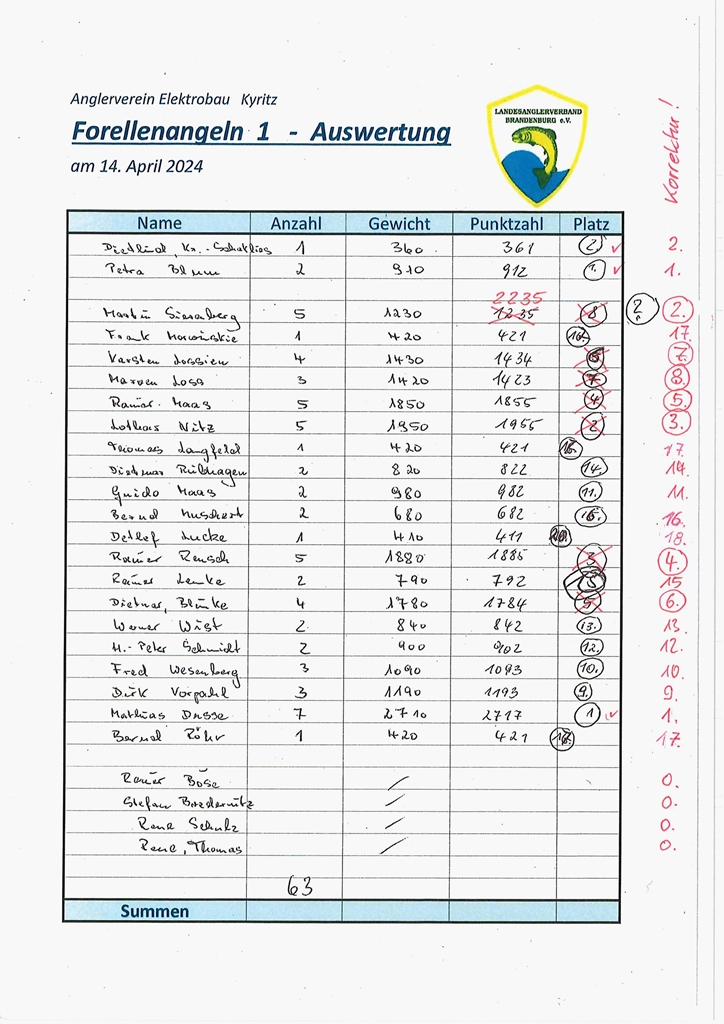 Anglerverein Elektrobau Kyritz
Forellenangeln 1 - Auswertung
am 14. April 2024
LANDESANGLERVERBAND
BRANDENBURG e.V.
Korrektur!
Name Anzahl Gewicht Punktzahl Platz
1 360 361 2. ✓ 2.
Petra Blum 2 910 912 1. ✓ 1.
2235
Martin 5 1230 1235 8 2. 2.
Frank 1 420 421 17.
Karsten 4 1430 1434 7.
Marven Loss 3 1420 1423 7. 8.
Rainer Maas 5 1850 1855 4 5.
Lothar Nitz 5 1950 1955 2 3.
Thomas Langfeld 1 420 421 17.
Dietmar 2 820 822 14. 14.
Guido Maas 2 980 982 11. 11.
Bernd Muschert 2 680 682 16. 16.
Detlef Lucke 1 410 411 20. 18.
Rainer Rensch 5 1880 1885 3 4.
Rainer Lemke 2 790 792 15 15
Dietmar, Blünke 4 1780 1784 5 6.
Werner Wüst 2 840 842 13. 13.
H.-Peter Schmidt 2 900 902 12. 12.
Fred Wesenberg 3 1090 1093 10. 10.
Dirk Vorpahl 3 1190 1193 9. 9.
Mathias Dosse 7 2710 2717 1 ✓ 1.
Bernd Röhr 1 420 421 17.
Rainer Böse / 0.
Stefan / 0.
Rene Schulz / 0.
Rene, Thomas / 0.
63
Summen